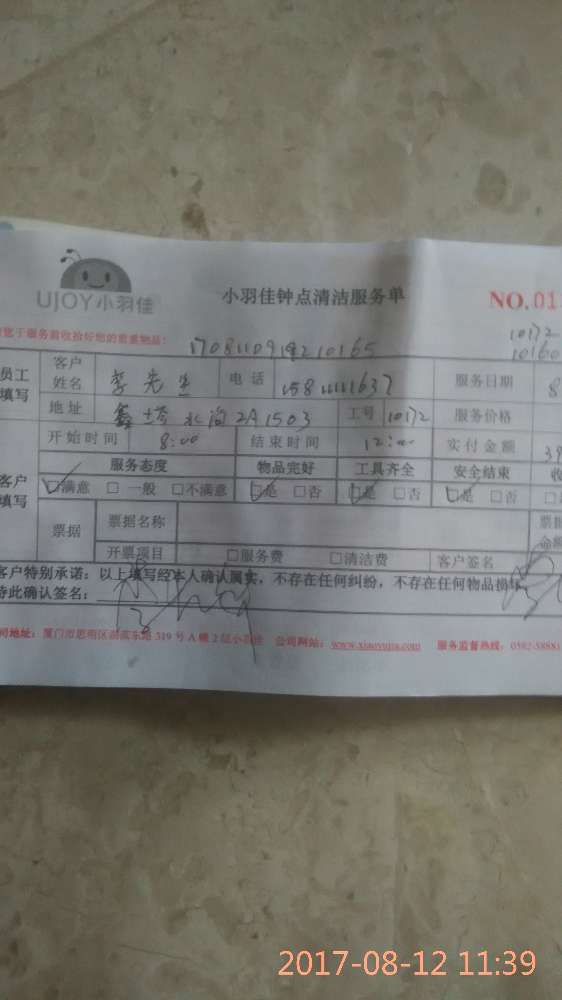 UJOY小羽佳
小羽佳钟点清洁服务单
NO.01
10172
10160
员工填写
客户姓名 李先生 电话 服务日期 8
地址 鑫塔水尚2A1503 工号 10172 服务价格
开始时间 8:00 结束时间 12:00 实付金额 39
客户填写
服务态度 物品完好 工具齐全 安全结束 收
满意 一般 不满意 是 否 是 否 是 否
票据 票据名称 票据金额
开票项目 服务费 清洁费 客户签名
客户特别承诺：以上填写经本人确认属实，不存在任何纠纷，不存在任何物品损坏
特此确认签名：
司地址：厦门市思明区前埔东路319号A幢2层小羽佳 公司网站：www.xiaoyujia.com 服务监督热线：0592-58881
2017-08-12 11:39